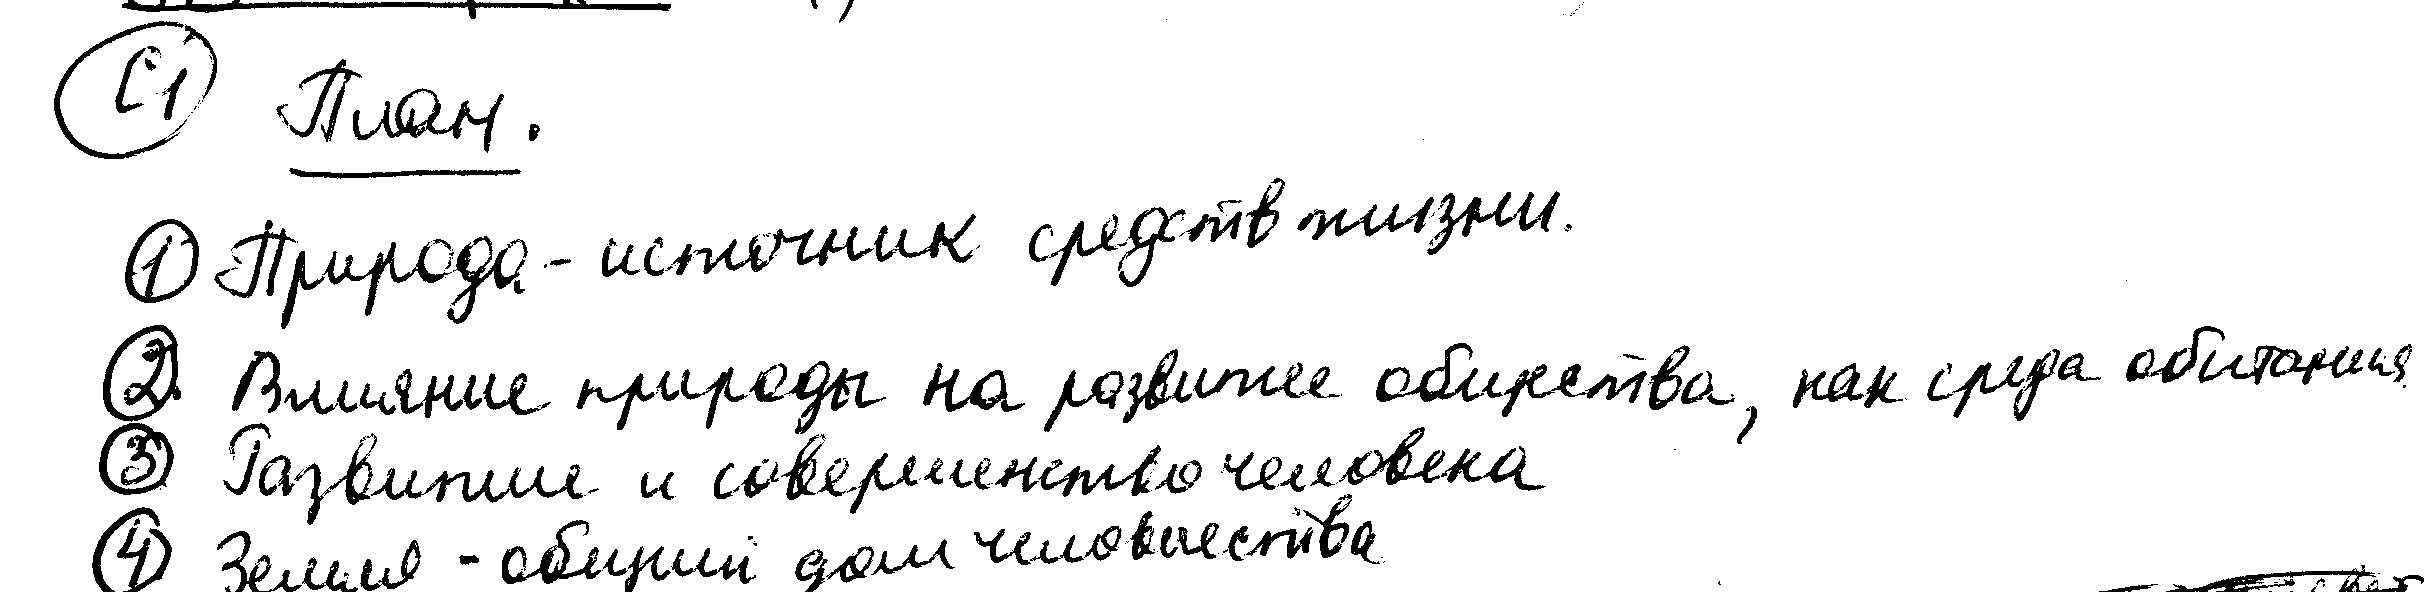 С1
План.
① Природа - источник средств жизни.
②. Влияние природы на развитее общества, как среда обитания
③ Развитие и совершенство человека
④ Земля - общий дом человечества